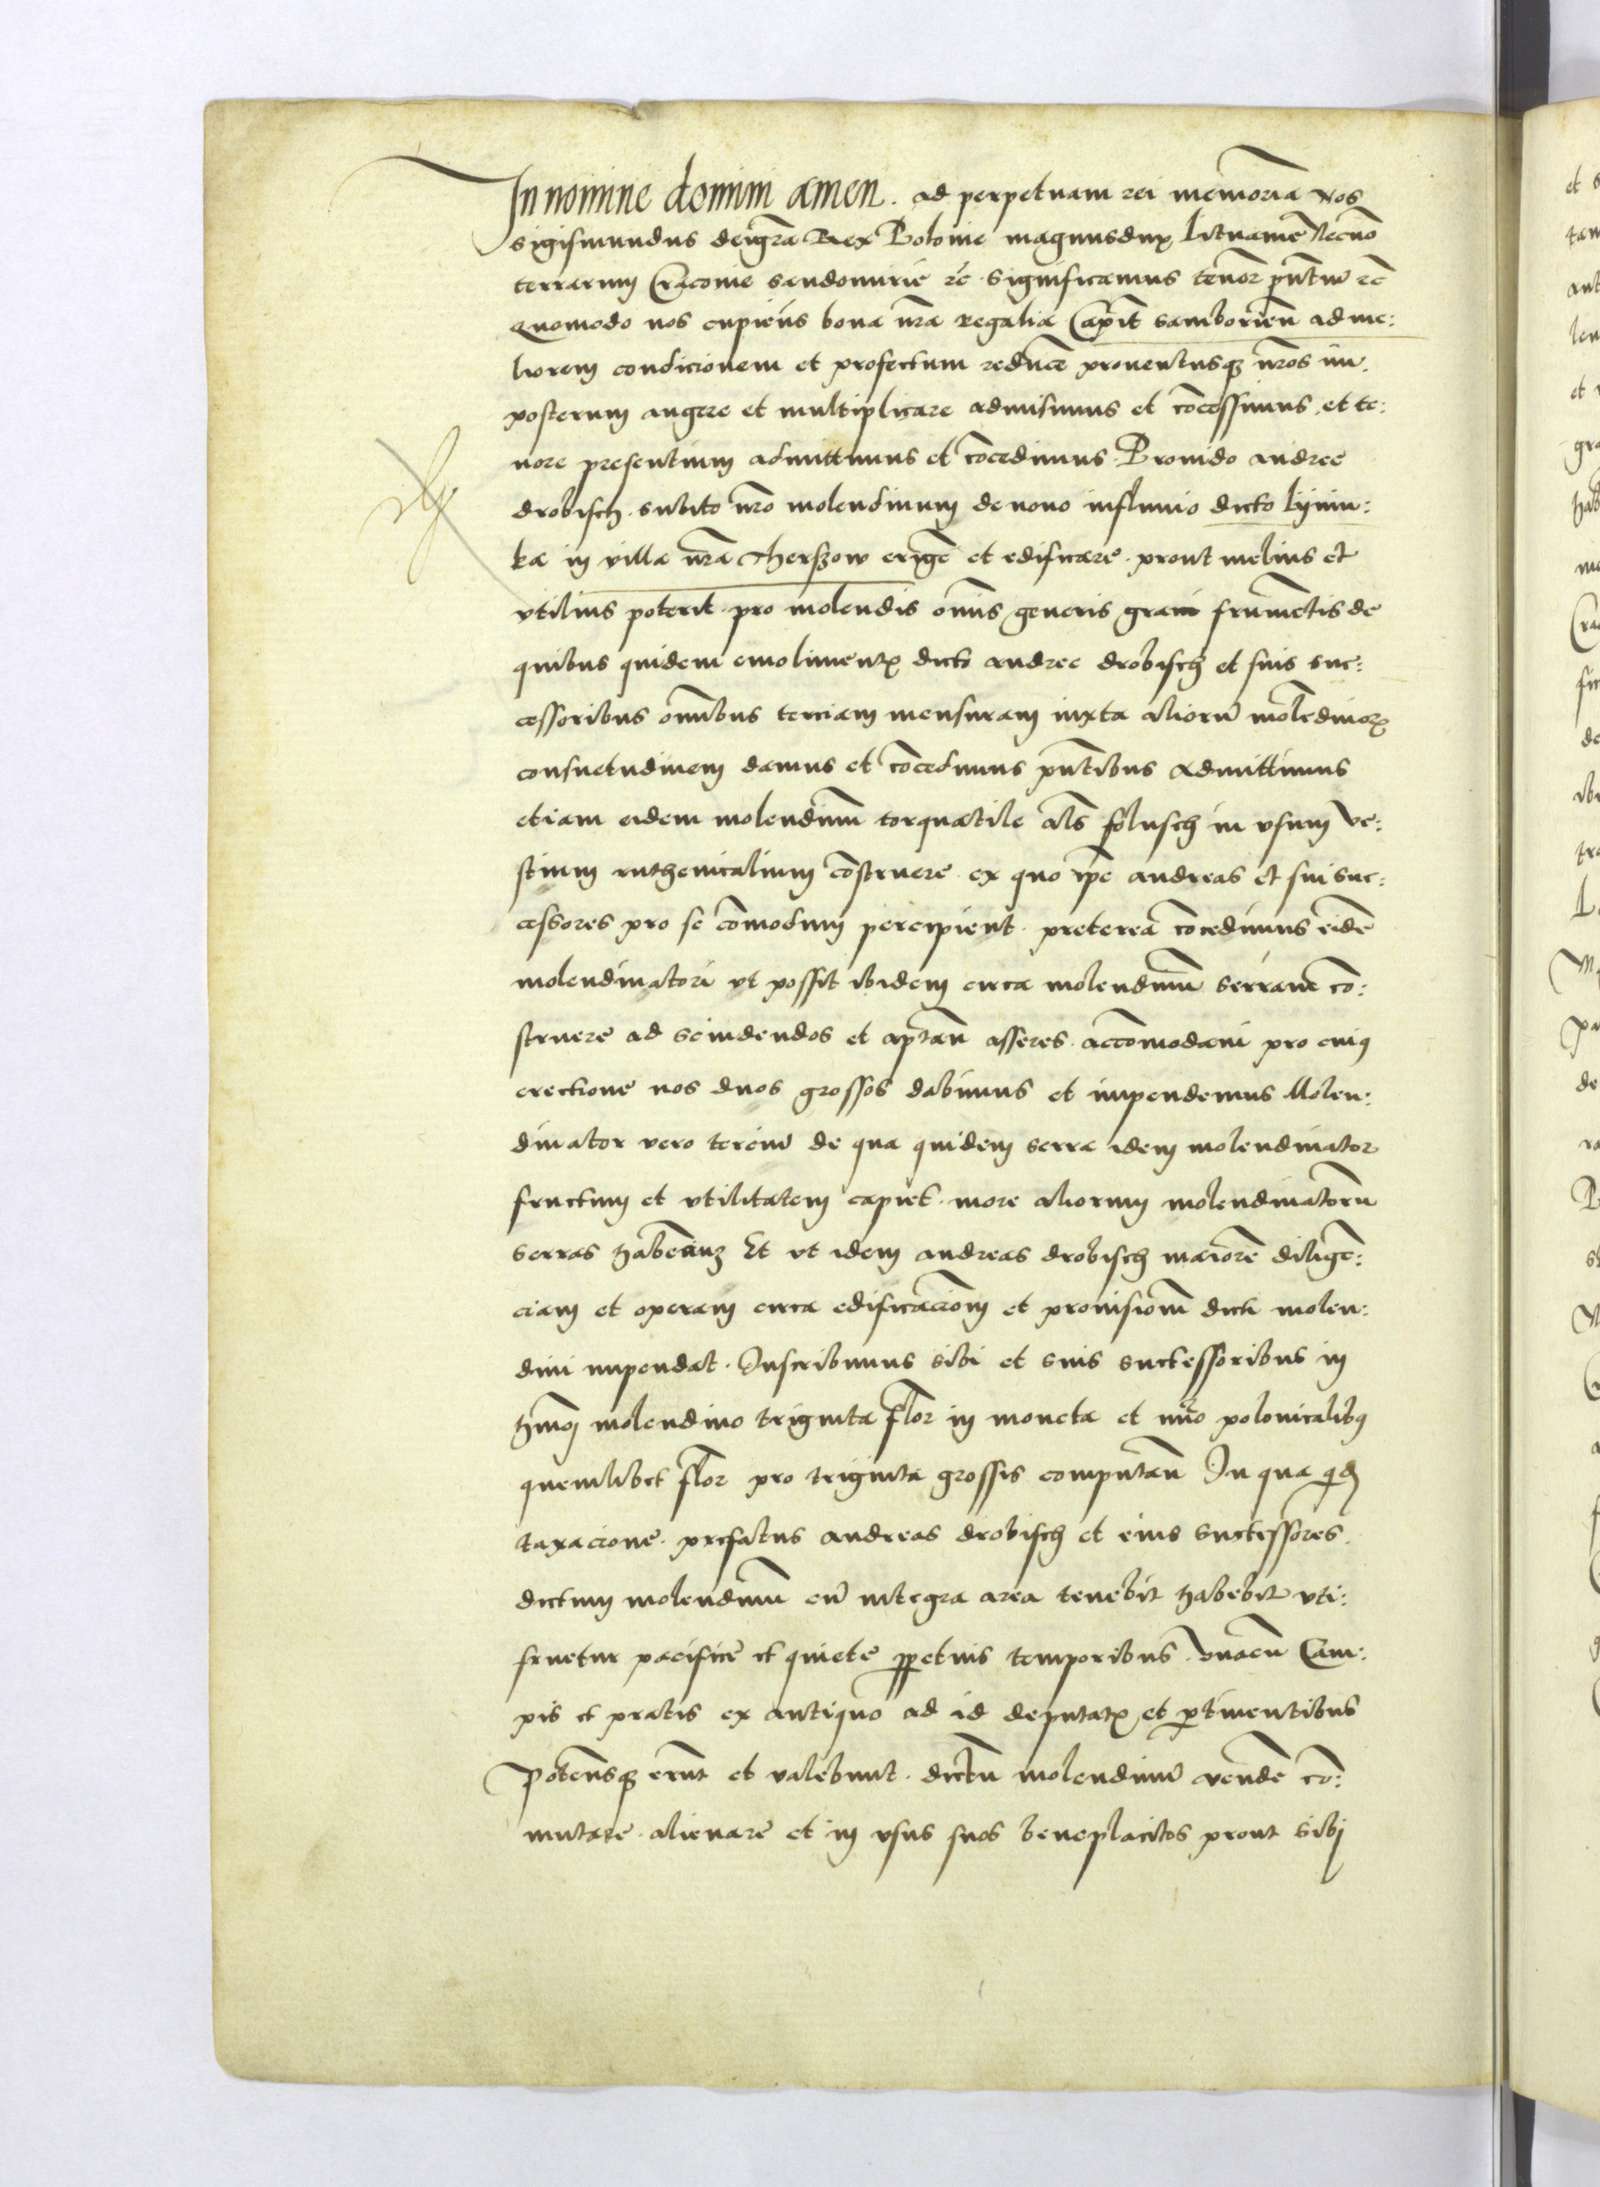 In nomine domini amen. ad perpetuam rei memoriā Nos
Sigismundus deigrā Rex Polonie magnusdux Lituanie Necnō
terrarum Cracovie Sandomirie rc̄. Significamus tenor pn̄tiū rc̄
Quomodo nos cupiens bona nr̄a regalia Capit̄ Samborien̄ ad me:
liorem condicionem et profectum reducē proventusq nr̄os im
posterum augere et multiplicare admisimus et cōcessimus et te:
nore presentium admittimus et cōcedimus Provido andree
drobisch. Subito nr̄o molendinum de novo in fluvio dicto lynin:
ka in villa nr̄a Therszow erigē et edificare. prout melius et
utilius poterit pro molendis om̄is generis grani frumētis de
quibus quidem emolimentꝝ dicto andree drobisch et suis suc:
cessoribus om̄ibus terciam mensuram iuxta aliorū molēdinorꝝ
consuetudinem damus et cōcedimus pn̄tibus Admittimus
etiam eidem molendinū torquatile al̄s folusch in usum ve:
stium ruthenicalium cōstruere ex quo ip̄e andreas et sui suc:
cessores pro se cōmodum percipient. preterea cōcedimus eidē
molendinatori ut possit ibidem circa molendinū serram cō:
struere ad scindendos et aptan̄ asseres. accōmodam pro cuiꝰ
erectione nos duos grossos dabimus et impendemus Molen:
dinator vero terciū de qua quidem serra idem molendinator
fructum et utilitatem capiet. more aliorum molendinatorū
serras habenciuȝ Et ut idem andreas drobisch maiorē diligē:
ciam et operam circa edificacionē et provisionē dicti molen:
dini impendat. Inscribimus sibi et suis successoribus in
hm̄oi molendino triginta flor̄ in moneta et nūo polonicalibꝰ
quemlibet flor̄ pro triginta grossis computan̄ In qua qd
taxacione. prefatus andreas drobisch et eius successores
dictum molendinū cū integra area tenebit habebit uti:
fruetur pacificē et quiete ꝑpetuis temporibus. vnacū Cam:
pis et pratis ex antiquo ad id deputatꝝ et ꝑtinentibus
Potensq erūt et valebunt. dictū molendinū vendē cō:
mutare. alienarē et in usus suos beneplacitos prout sibi